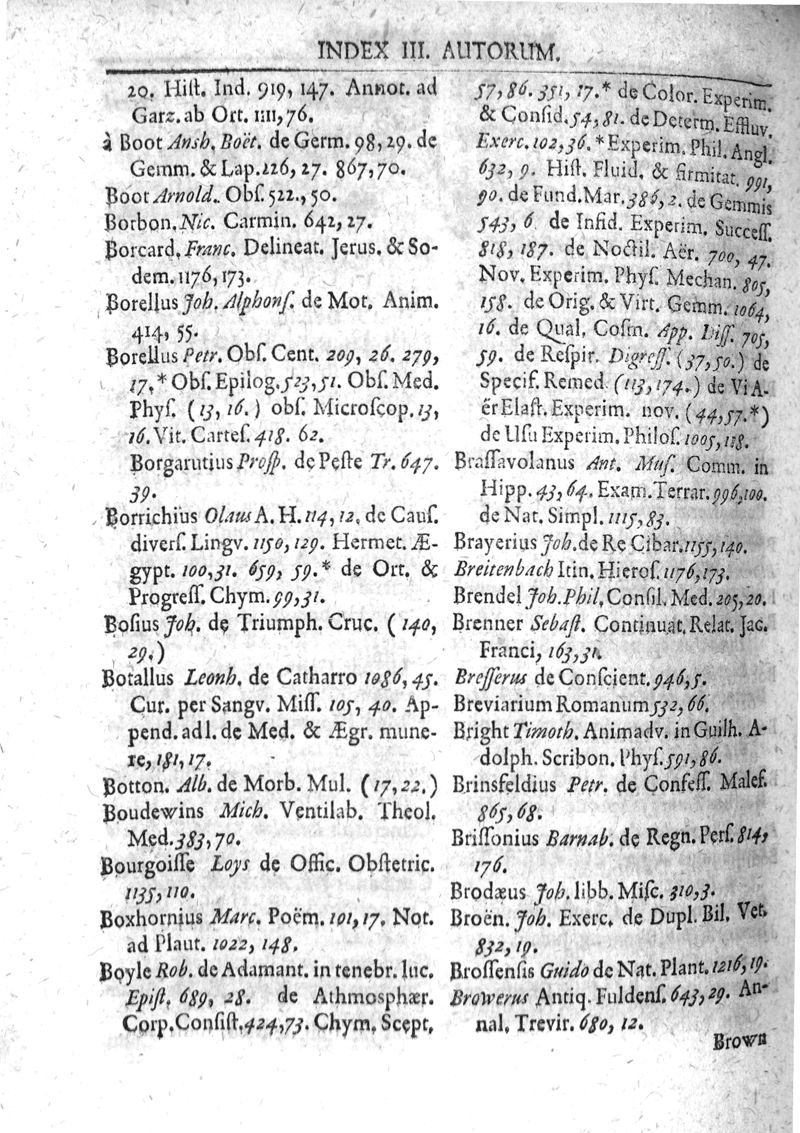 INDEX III. AUTORUM.
20. Hiſt. Ind. 919, 147. Annot. ad
Garz. ab Ort. 1111, 76.
à Boot Ansh. Boët. de Germ. 98, 29. de
Gemm. & Lap. 226, 27. 867, 70.
Boot Arnold. Obſ. 522., 50.
Borbon. Nic. Carmin. 642, 27.
Borcard. Franc. Delineat. Jerus. & So-
dem. 1176, 173.
Borellus Joh. Alphonſ. de Mot. Anim.
414, 55.
Borellus Petr. Obſ. Cent. 209, 26. 279,
17.* Obſ. Epilog. 523, 51. Obſ. Med.
Phyſ. (13, 16.) obſ. Microſcop. 13,
16. Vit. Carteſ. 418. 62.
Borgarutius Proſp. de Peſte Tr. 647.
39.
Borrichius Olaus A. H. 114, 12. de Cauſ.
diverſ. Lingv. 1150, 129. Hermet. Æ-
gypt. 100, 31. 659, 59.* de Ort. &
Progreſſ. Chym. 99, 31.
Boſius Joh. de Triumph. Cruc. (140,
29.)
Botallus Leonh. de Catharro 1086, 45.
Cur. per Sangv. Miſſ. 105, 40. Ap-
pend. ad l. de Med. & Ægr. mune-
re, 181, 17.
Botton. Alb. de Morb. Mul. (17, 22.)
Boudewins Mich. Ventilab. Theol.
Med. 383, 70.
Bourgoiſſe Loys de Offic. Obſtetric.
1135, 110.
Boxhornius Marc. Poëm. 101, 17. Not.
ad Plaut. 1022, 148.
Boyle Rob. de Adamant. in tenebr. luc.
Epiſt. 689, 28. de Athmosphær.
Corp. Conſiſt. 424, 73. Chym. Scept.
57, 86. 351, 17.* de Color. Experim.
& Conſid. 54, 81. de Determ. Effluv.
Exerc. 102, 36. * Experim. Phil. Angl.
632, 9. Hiſt. Fluid. & firmitat. 991,
90. de Fund. Mar. 386, 2. de Gemmis
543, 6. de Infid. Experim. Succeſſ.
818, 187. de Noctil. Aër. 700, 47.
Nov. Experim. Phyſ. Mechan. 805,
158. de Orig. & Virt. Gemm. 1064,
16. de Qual. Coſm. App. Diſſ. 705,
59. de Reſpir. Digreſſ. (37, 50.) de
Specif. Remed. (113, 174.) de Vi A-
ër Elaſt. Experim. nov. (44, 57.*)
de Uſu Experim. Philoſ. 1005, 118.
Braſſavolanus Ant. Muſ. Comm. in
Hipp. 43, 64. Exam. Terrar. 996, 100.
de Nat. Simpl. 1115, 83.
Brayerius Joh. de Re Cibar. 1155, 140.
Breitenbach Itin. Hieroſ. 1176, 173.
Brendel Joh. Phil. Conſil. Med. 205, 20.
Brenner Sebaſt. Continuat. Relat. Jac.
Franci, 163, 31.
Breſſerus de Conſcient. 946, 5.
Breviarium Romanum 532, 66.
Bright Timoth. Animadv. in Guilh. A-
dolph. Scribon. Phyſ. 591, 86.
Brinsfeldius Petr. de Confeſſ. Malef.
865, 68.
Briſſonius Barnab. de Regn. Perſ. 814,
176.
Brodæus Joh. libb. Miſc. 310, 3.
Broën. Joh. Exerc. de Dupl. Bil. Vet.
832, 19.
Broſſenſis Guido de Nat. Plant. 1216, 19.
Browerus Antiq. Fuldenſ. 643, 29. An-
nal. Trevir. 680, 12.
Brown